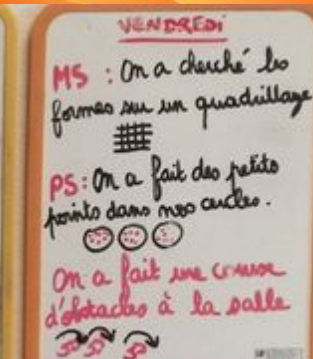 VENDREDI
MS : On a cherché les
formes sur un quadrillage
PS : On a fait des petits
points dans nos cercles.
On a fait une course
d'obstacles à la salle